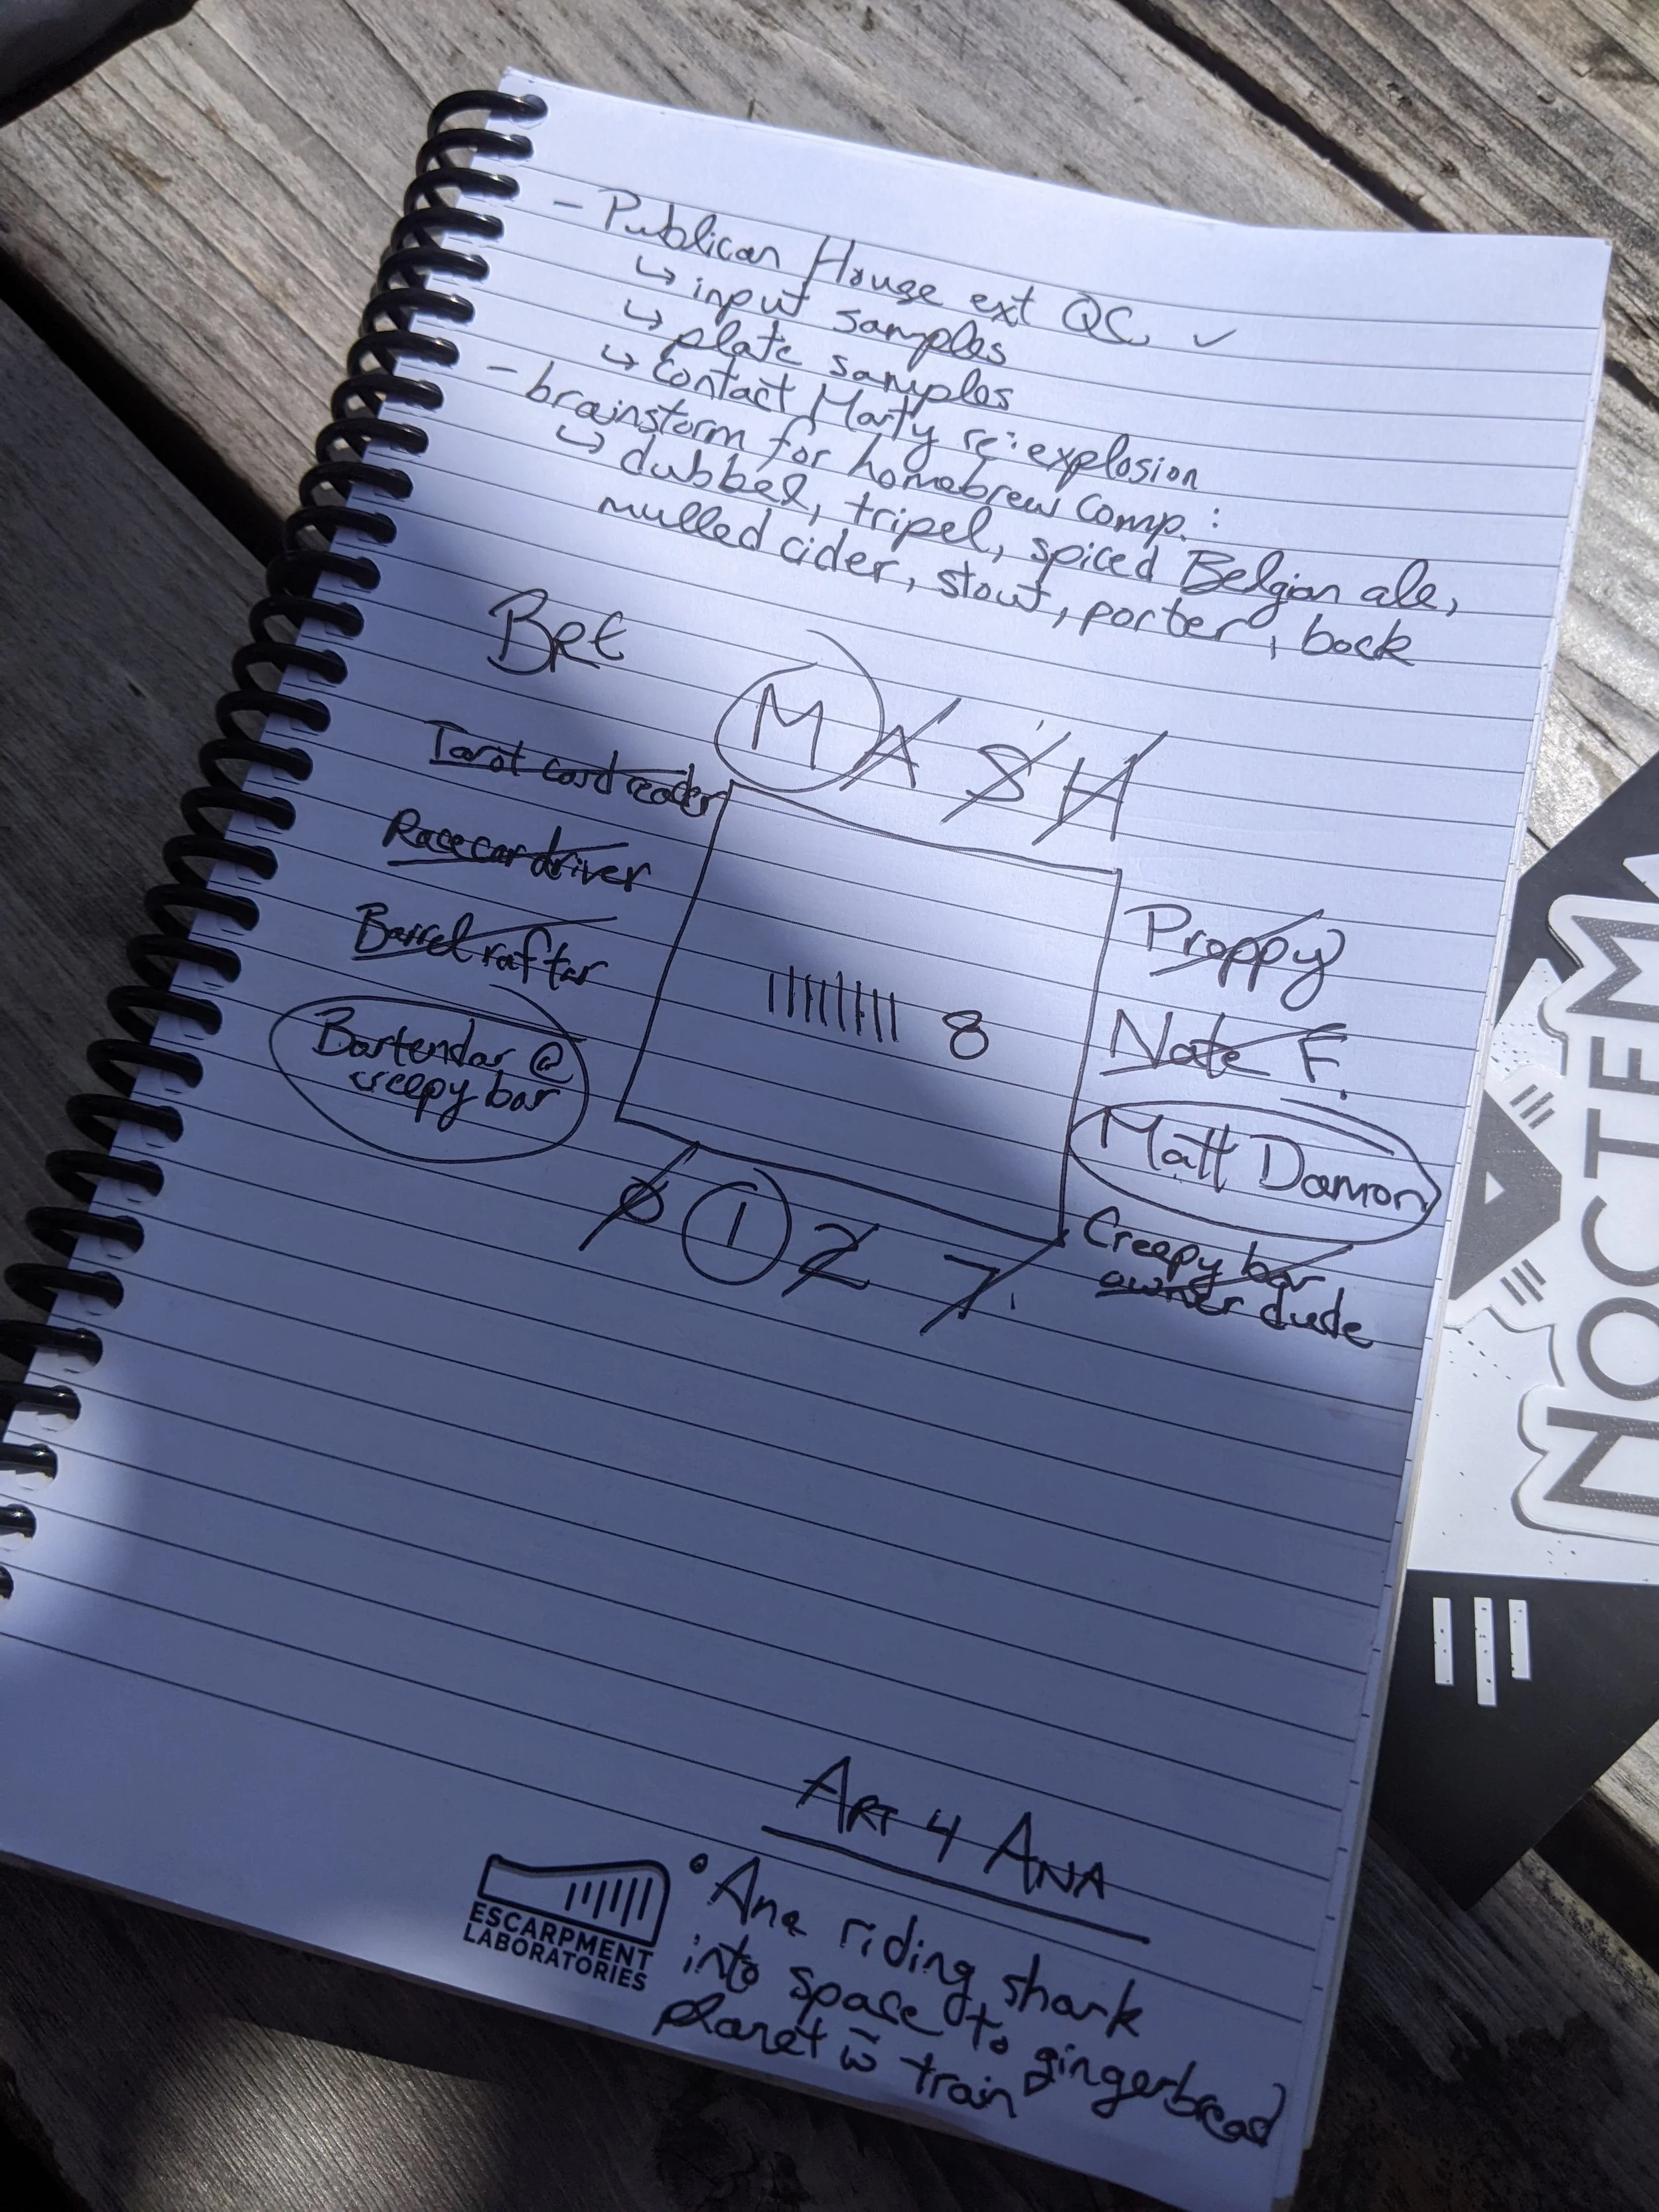 - Publican House ext QC. ✓
↳ input samples
↳ plate samples
↳ Contact Marty re: explosion
- brainstorm for homebrew comp.:
↳ dubbel, tripel, spiced Belgian ale,
mulled cider, stout, porter, bock
M A S H
Tarot card reader
Racecar driver
Barrel rafter
Bartendar @
creepy bar
|||||||| 8
Preppy
Nate F.
Matt Damon
Creepy bar
owner dude
1 2 7
ART 4 ANA
• Ana riding shark
into space to gingerbread
planet w̄ train
ESCARPMENT
LABORATORIES
NOCTEM